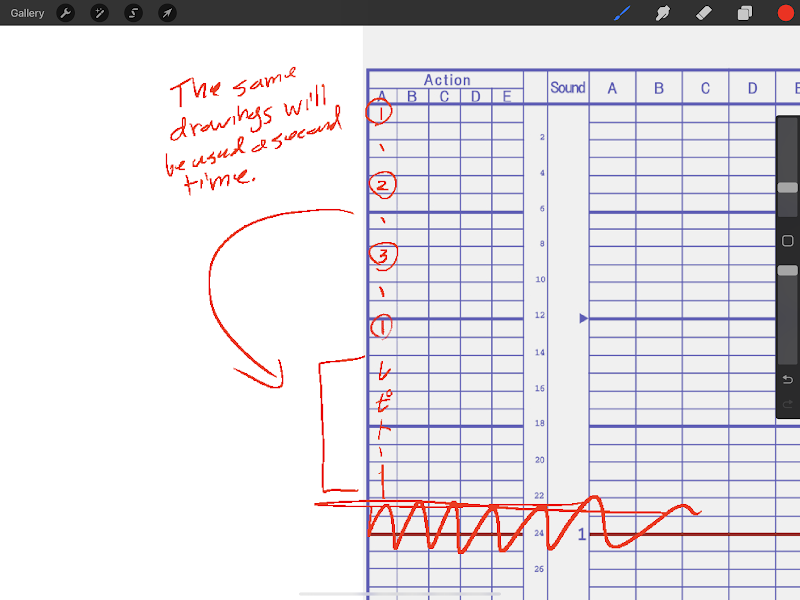 Gallery
The same
drawings will
be used a second
time.
Action
Sound
A B C D E
A B C D E
1
2
3
1
2
4
6
8
10
12
14
16
18
20
22
24
26
1